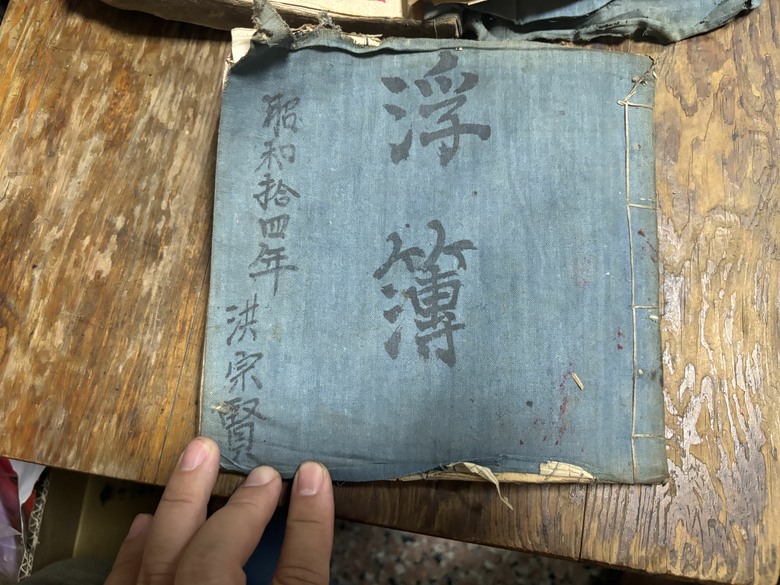 浮簿
昭和拾四年
洪宗賢